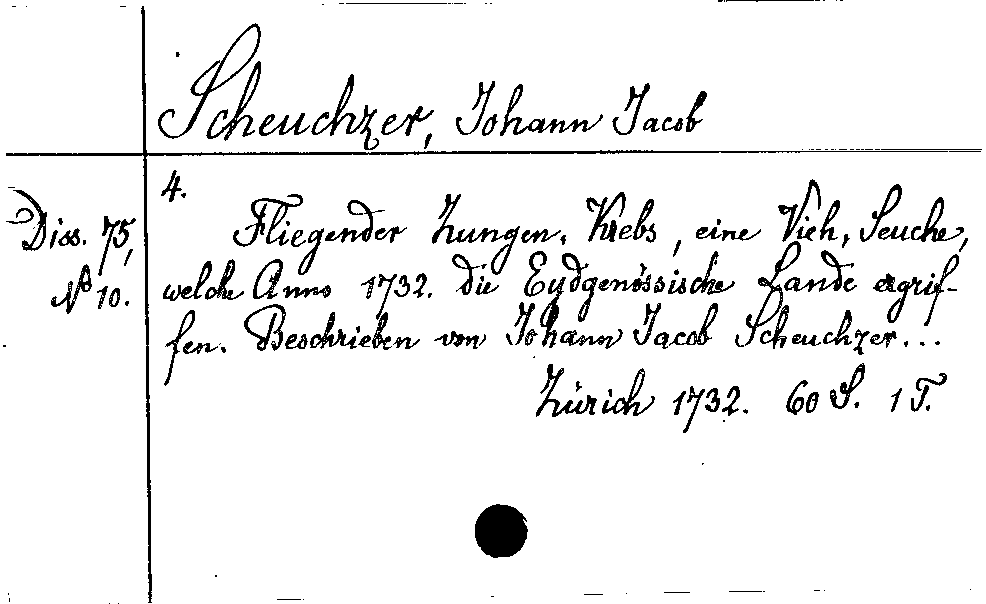 Scheuchzer, Johann Jacob
4.
Diss. 75,
No 10.
Fliegender Zungen, Krebs, eine Vieh, Seuche,
welche Anno 1732. die Eydgenössische Lande ergrif-
fen. Beschrieben von Johann Jacob Scheuchzer...
Zürich 1732. 60 S. 1 T.